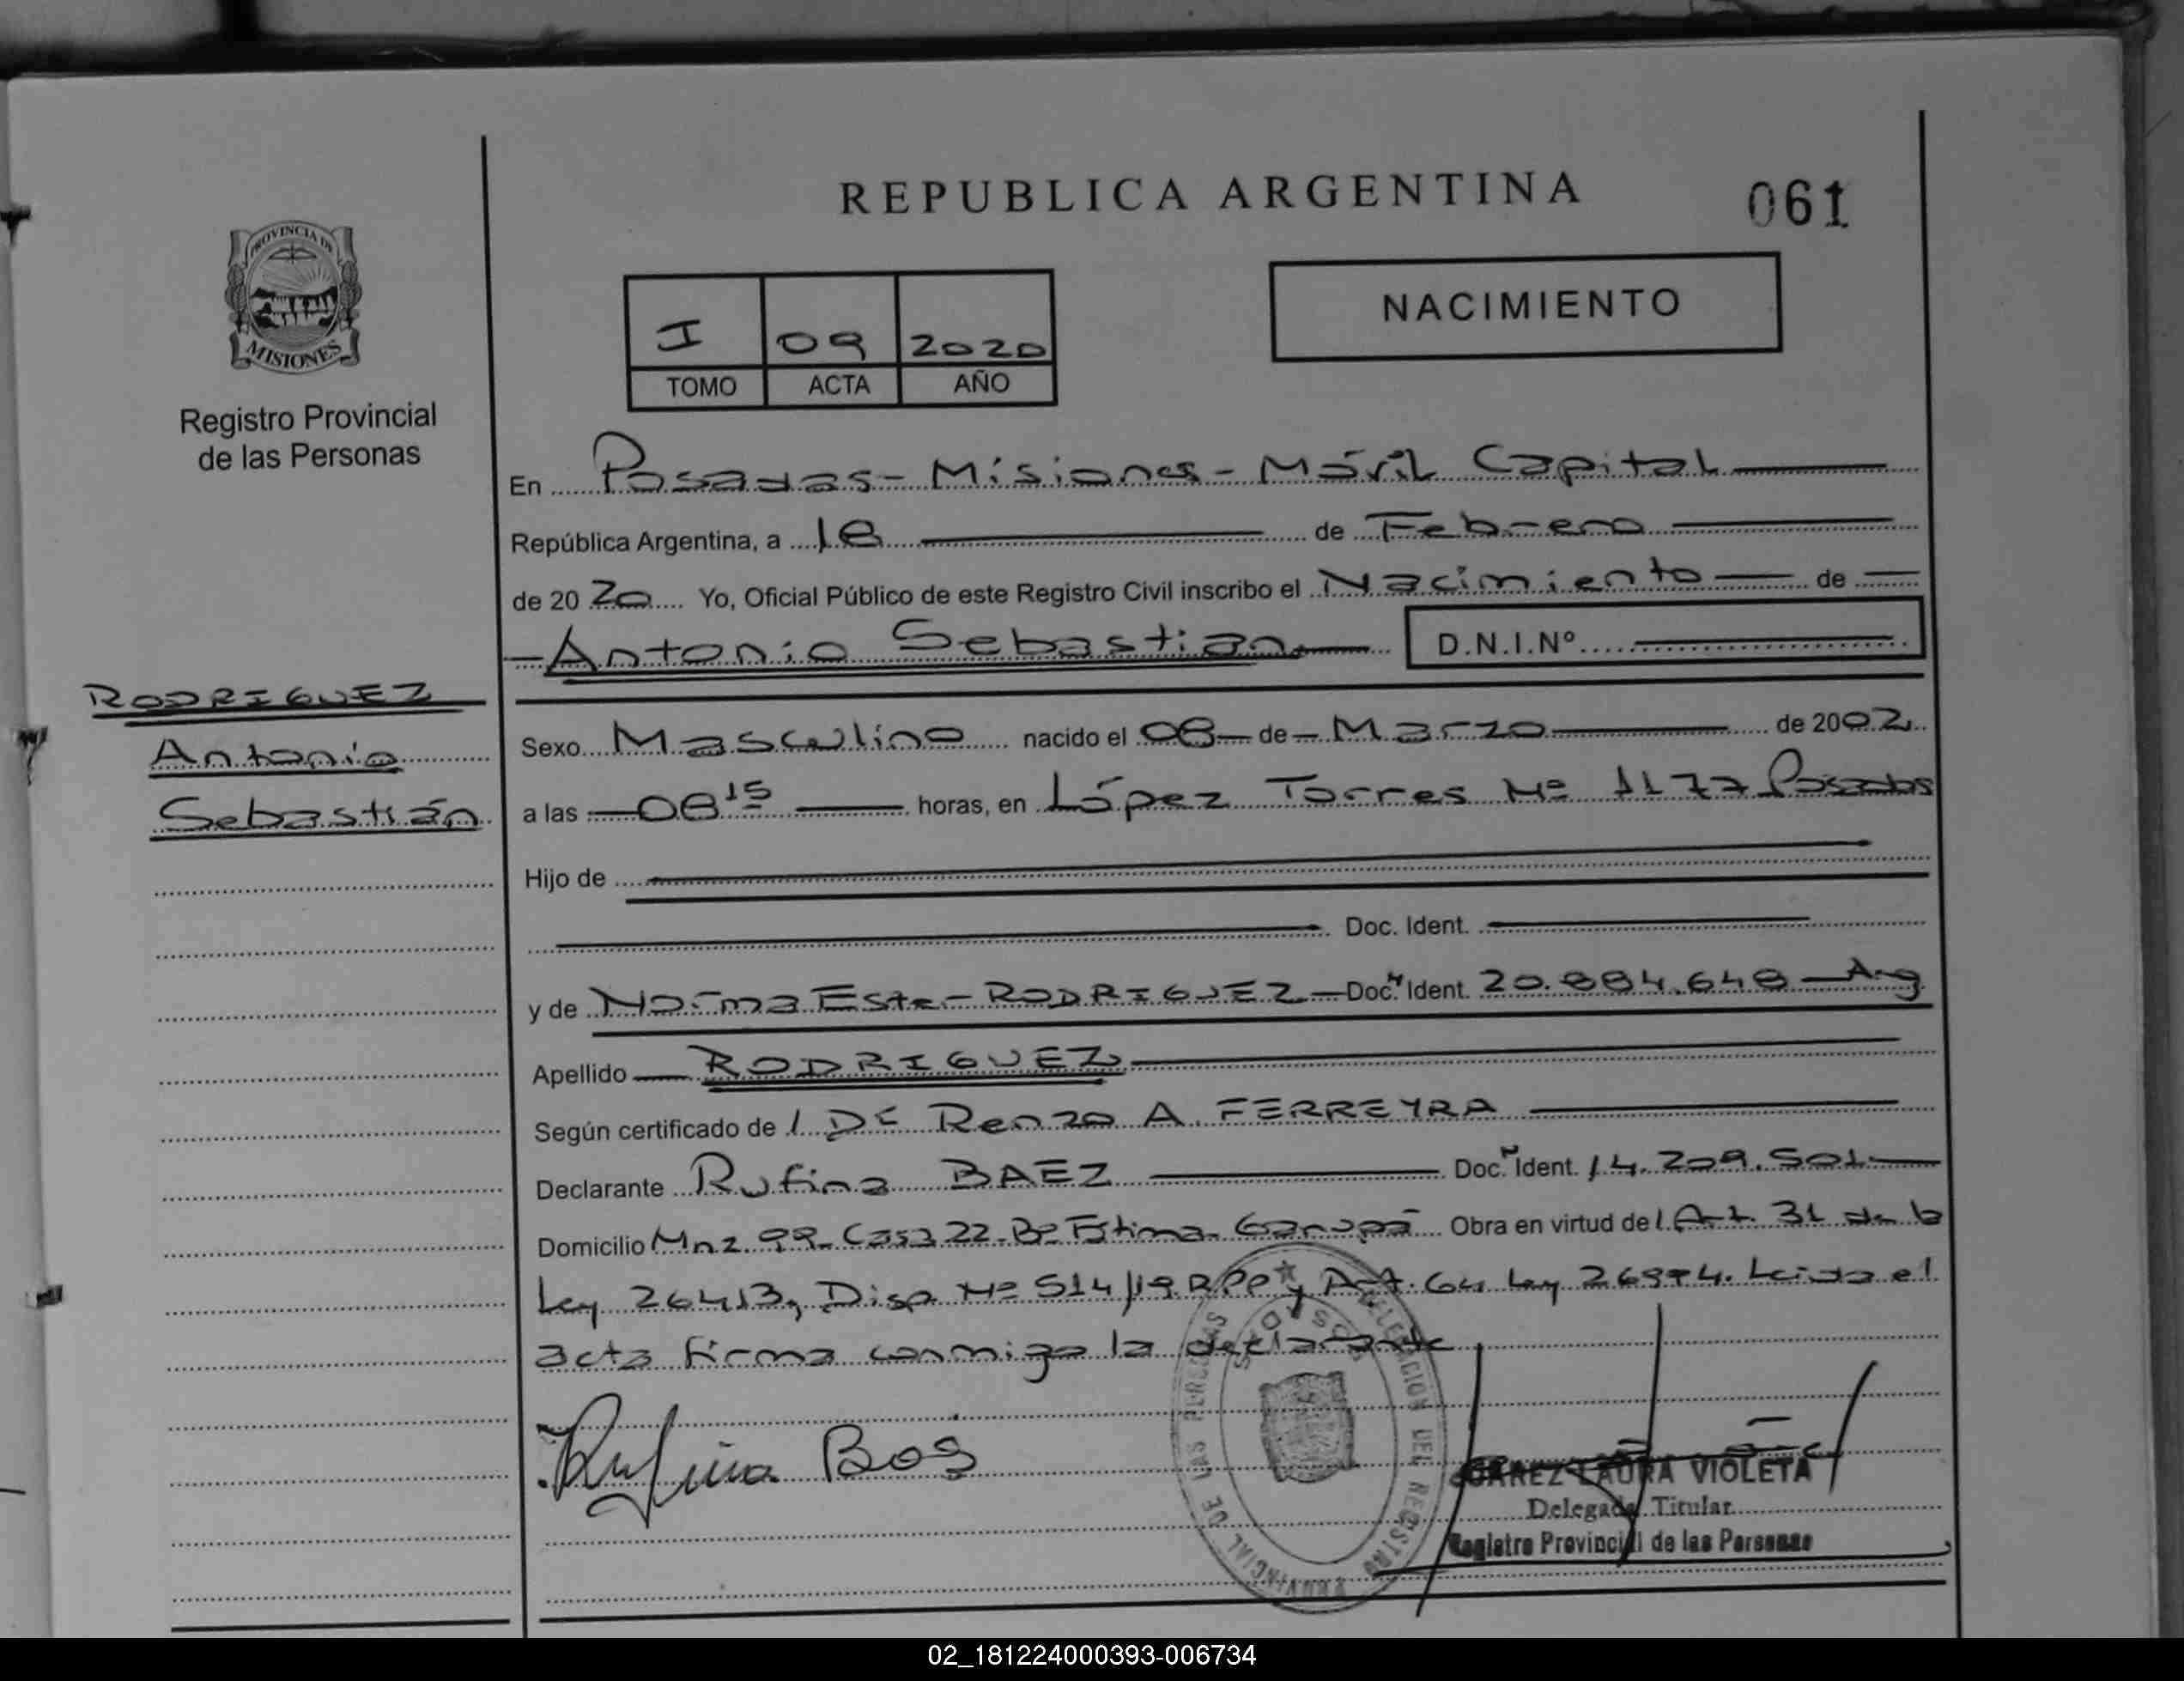 REPUBLICA ARGENTINA
061
PROVINCIA DE
MISIONES
Registro Provincial
de las Personas
I 09 2020
TOMO ACTA AÑO
NACIMIENTO
En Posadas - Misiones - Móvil Capital
República Argentina, a 18 de Febrero
de 20 20 Yo, Oficial Público de este Registro Civil inscribo el Nacimiento de
Antonio Sebastian D.N.I.Nº
RODRIGUEZ
Antonio
Sebastián
Sexo Masculino nacido el 08 de Marzo de 2002
a las 08 15 horas, en López Torres Nº 1177 Posadas
Hijo de
Doc. Ident.
y de Norma Ester RODRIGUEZ Doc. Ident. 20.884.648 - Arg
Apellido RODRIGUEZ
Según certificado de l Dr Renzo A. FERREYRA
Declarante Rufina BAEZ Doc. Ident. 14.209.501
Domicilio Mnz 99 - Casa 22 - Bº Fátima - Garupá Obra en virtud del Art. 31 de la
Ley 26413, Disp Nº 514/19 RPP y Art. 64 Ley 26994. Leida el
acta firma conmigo la declarante
Rufina
DELEGACION DEL REGISTRO PROVINCIAL DE LAS PERSONAS
POSADAS
LAURA VIOLETA
Delegada Titular
Registro Provincial de las Personas
02_181224000393-006734